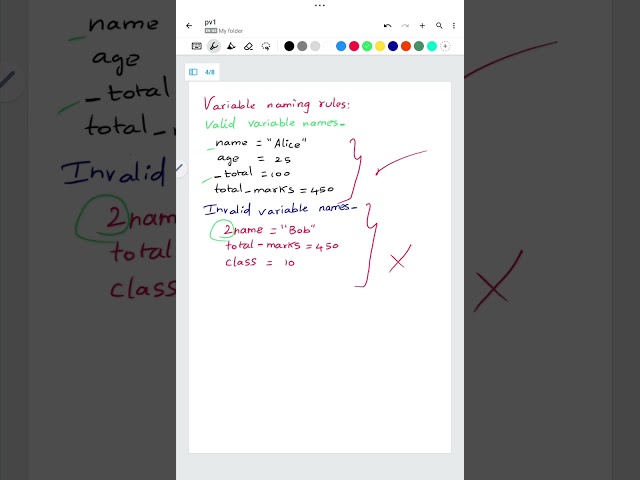 pv1
My folder
4/8
Variable naming rules:
Valid variable names-
name = "Alice"
age = 25
_total = 100
total_marks = 450
Invalid variable names-
2name = "Bob"
total-marks = 450
class = 10
name
age
_total
total_m
Invalid
2nam
total
class